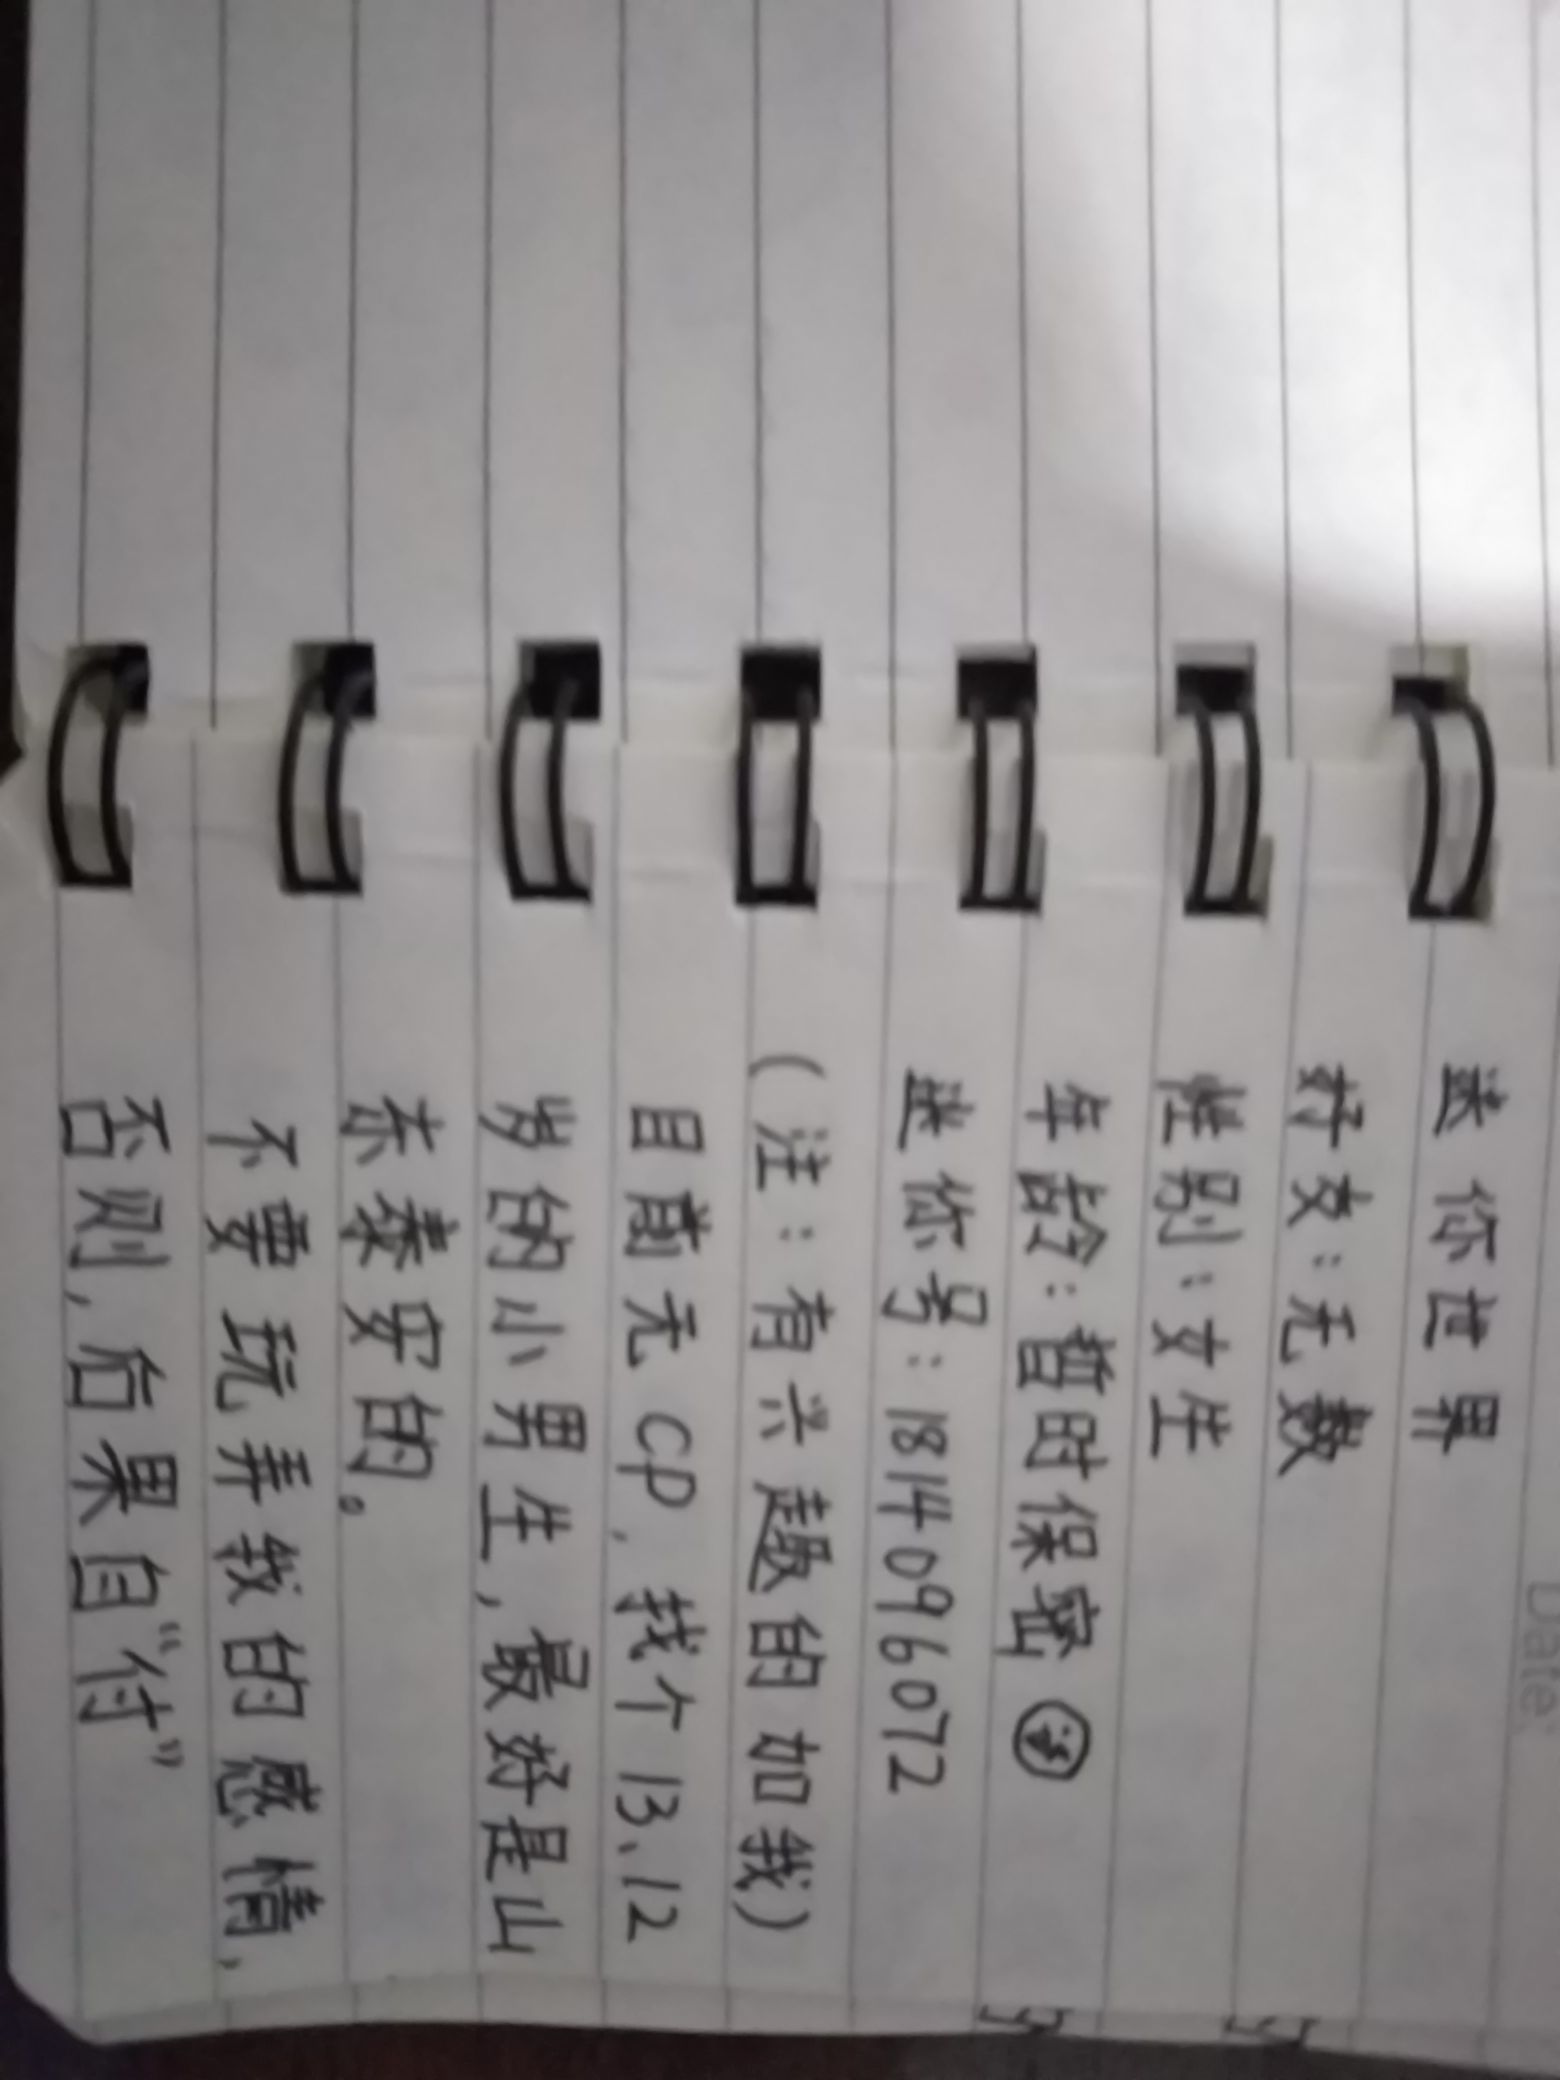 迷你世界
好友：无数
性别：女生
年龄：暂时保密
迷你号：1814096072
（注：有兴趣的加我）
目前无CP，找个13、12
岁的小男生，最好是山
东泰安的。
不要玩弄我的感情，
否则，后果自“付”
Date: